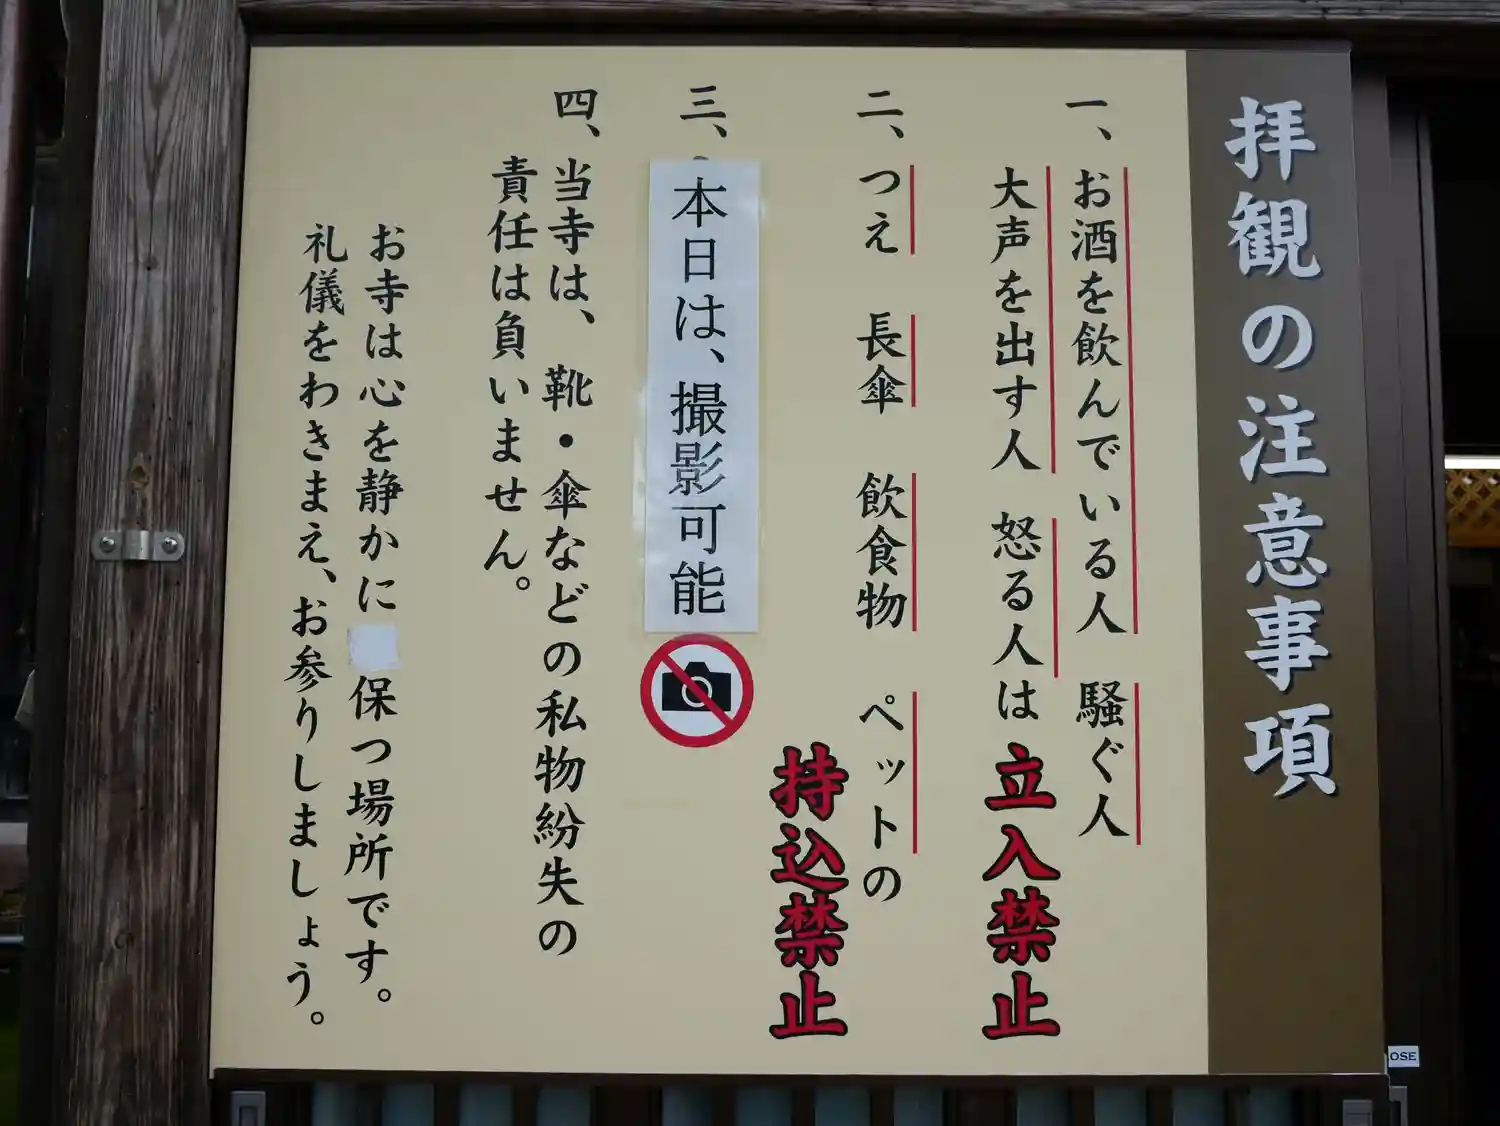 拝観の注意事項
一、お酒を飲んでいる人　騒ぐ人
大声を出す人　怒る人は立入禁止
二、つえ　長傘　飲食物　ペットの
持込禁止
三、
本日は、撮影可能
四、当寺は、靴・傘などの私物紛失の
責任は負いません。
お寺は心を静かに保つ場所です。
礼儀をわきまえ、お参りしましょう。
OSE